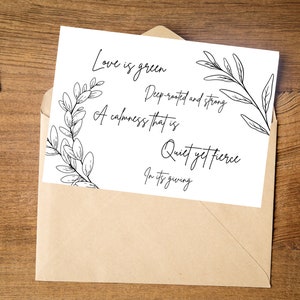 Love is green
Deep-rooted and strong
A calmness that is
Quiet yet fierce
In its giving